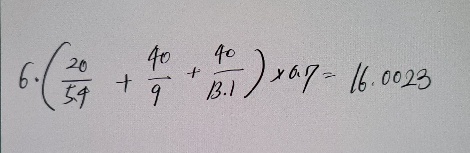 6·(20/5.4 + 40/9 + 40/13.1) × 0.7 = 16.0023